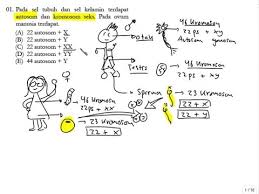 01. Pada sel tubuh dan sel kelamin terdapat
autosom dan kromosom seks. Pada ovum
manusia terdapat
(A) 22 autosom + X
(B) 22 autosom + Y
(C) 22 autosom + XX
(D) 22 autosom + YY
(E) 44 autosom + Y
46 kromosom
22 ps + xy
Autosom gonosom
46 kromosom
22 ps + xy
Testis
Sperma
46 kromosom
22 ps + xx
23 kromosom
22 + x
23 kromosom
22 + x
22 + y
1 / 10